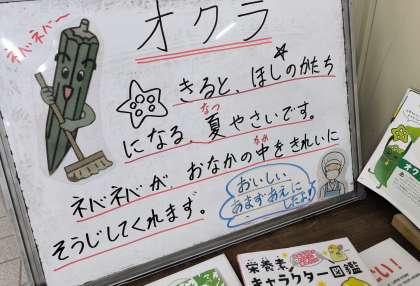 オクラ
ネバネバ〜
きると、ほしのかたち
になる、夏やさいです。
なつ
ネバネバが、おなかの中をきれいに
なか
そうじしてくれます。
おいしい
あまずあえに
したよ♪
栄養素
キャラクター図鑑